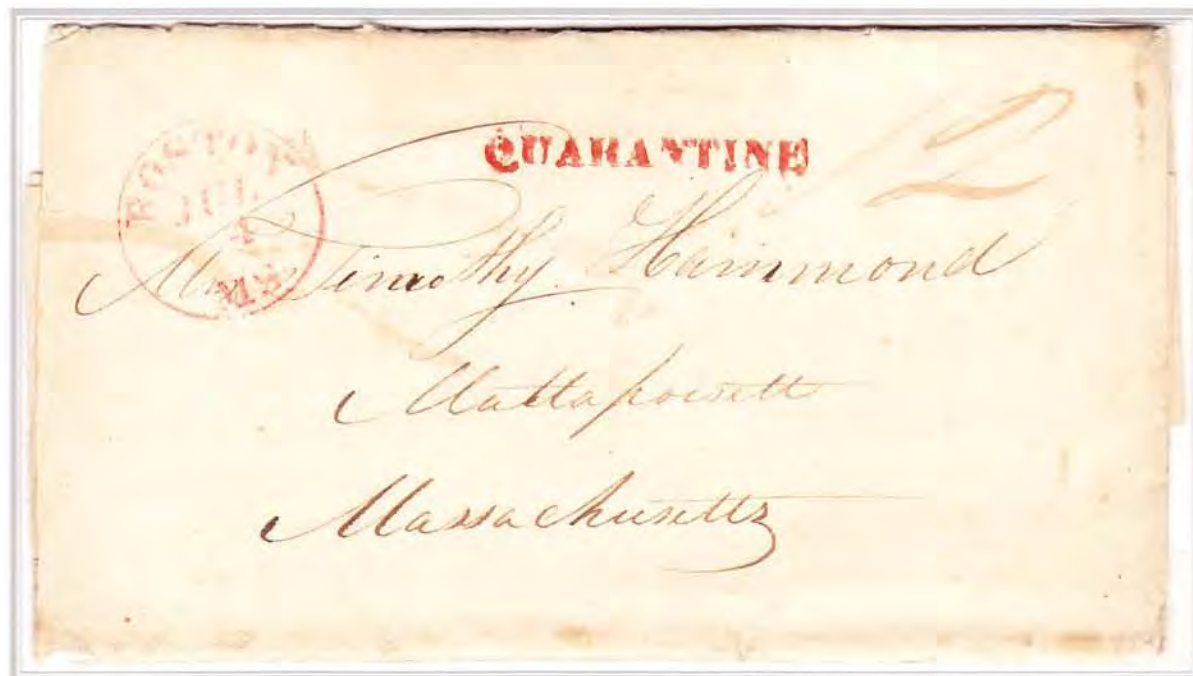 BOSTON
JUL
MS
QUARANTINE
12
Mr. Timothy Hammond
Mattapoisett
Massachusetts